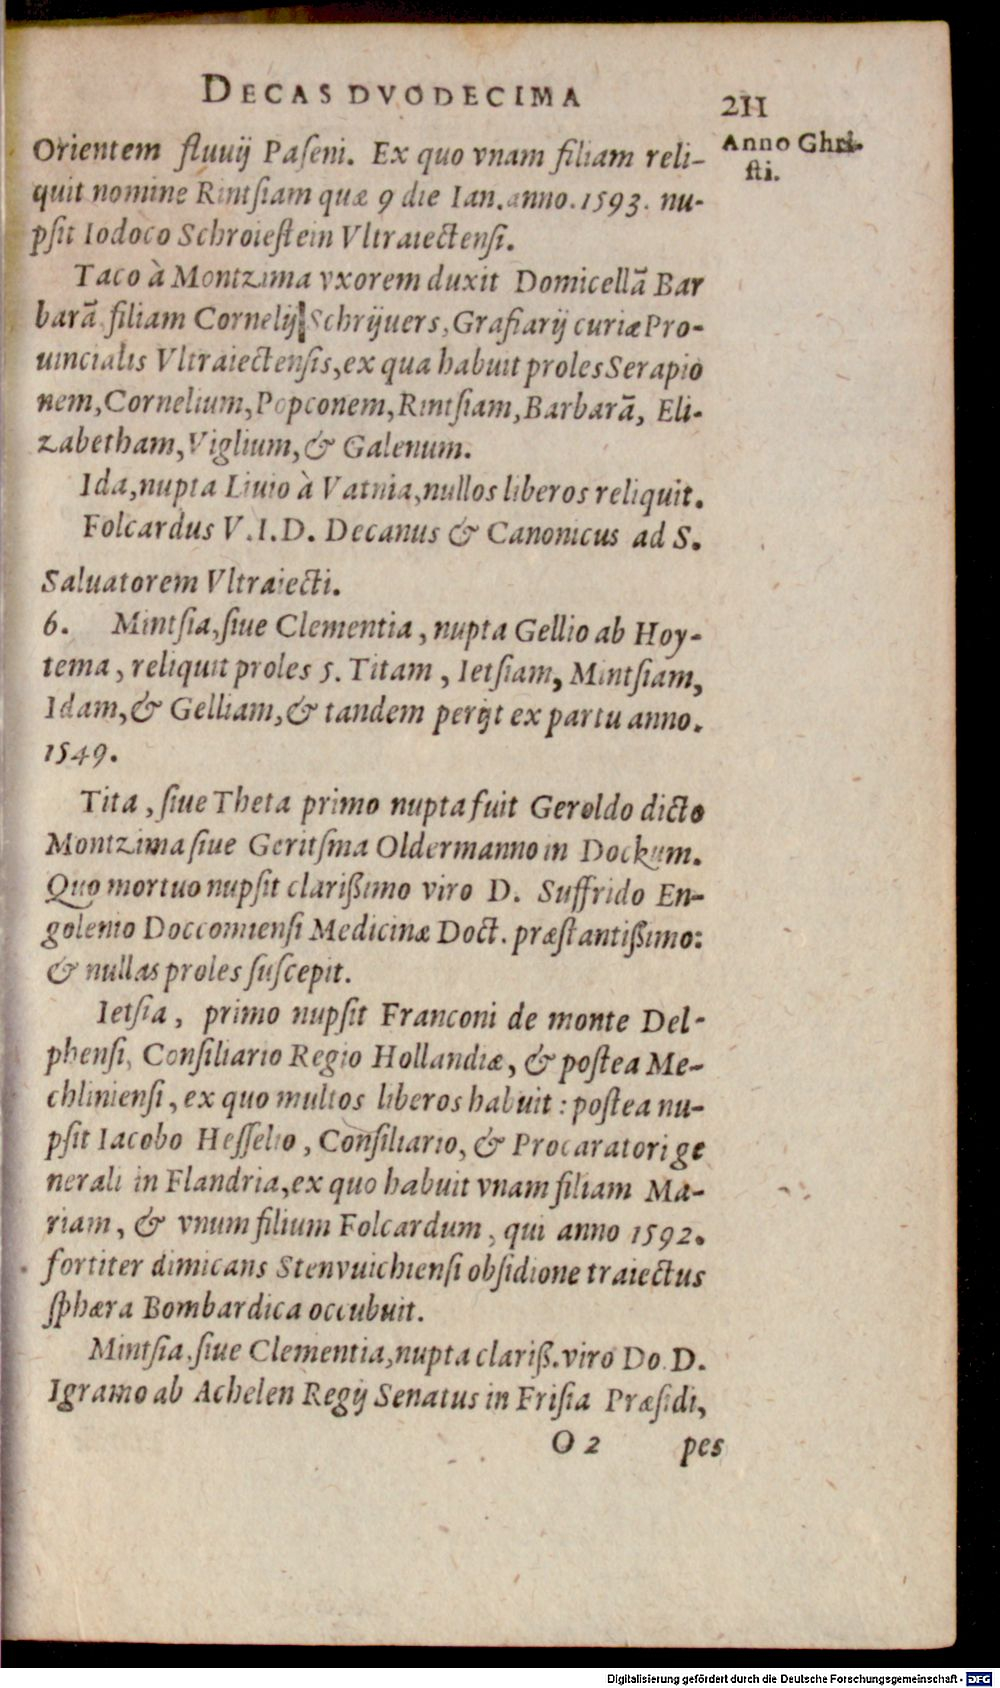 DECAS DVODECIMA
211
Anno Ghri-
sti.
Orientem fluuij Paſeni. Ex quo vnam filiam reli-
quit nomine Rintſiam quæ 9 die Ian. anno. 1593. nu-
pſit Iodoco Schroieſtein Vltraiectenſi.
Taco à Montzima vxorem duxit Domicellã Bar
barã filiam Cornelij Schrijuers, Grafiarij curiæ Pro-
uincialis Vltraiectenſis, ex qua habuit proles Serapio
nem, Cornelium, Popconem, Rintſiam, Barbarã, Eli-
zabetham, Viglium, & Galenum.
Ida, nupta Liuio à Vatnia, nullos liberos reliquit.
Folcardus V.I.D. Decanus & Canonicus ad S.
Saluatorem Vltraiecti.
6. Mintſia, ſiue Clementia, nupta Gellio ab Hoy-
tema, reliquit proles 5. Titam, Ietſiam, Mintſiam,
Idam, & Gelliam, & tandem perijt ex partu anno.
1549.
Tita, ſiue Theta primo nupta fuit Geroldo dicto
Montzima ſiue Geritſma Oldermanno in Dockum.
Quo mortuo nupſit clarißimo viro D. Suffrido En-
golenio Doccomienſi Medicinæ Doct. præſtantißimo:
& nullas proles ſuſcepit.
Ietſia, primo nupſit Franconi de monte Del-
phenſi, Conſiliario Regio Hollandiæ, & poſtea Me-
chlinienſi, ex quo multos liberos habuit: poſtea nu-
pſit Iacobo Heſſelio, Conſiliario, & Procaratori ge
nerali in Flandria, ex quo habuit vnam filiam Ma-
riam, & vnum filium Folcardum, qui anno 1592.
fortiter dimicans Stenvuichienſi obſidione traiectus
ſphæra Bombardica occubuit.
Mintſia, ſiue Clementia, nupta clariß. viro Do. D.
Igramo ab Achelen Regij Senatus in Friſia Præſidi,
O 2 pes
Digitalisierung gefördert durch die Deutsche Forschungsgemeinschaft - DFG